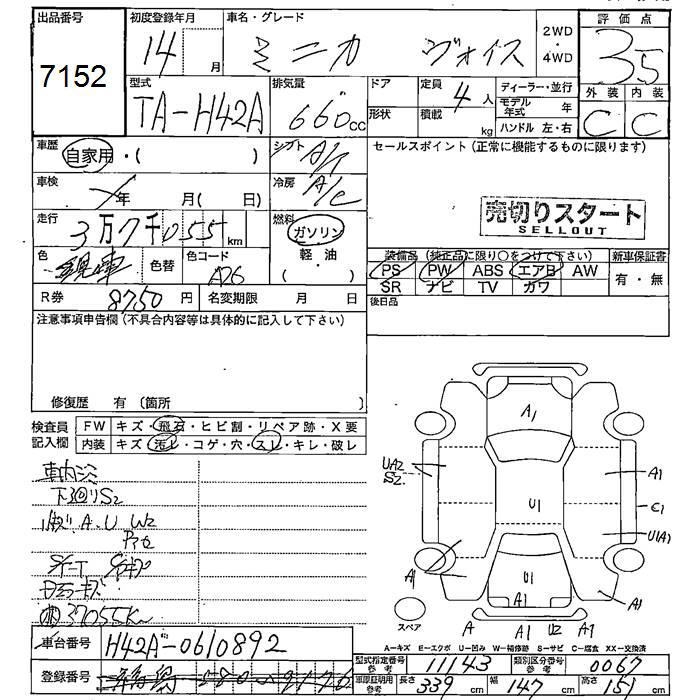 出品番号 初度登録年月 車名・グレード 2WD ・ 4WD 評価点
7152 14 月 ミニカ ヴォイス 3.5
型式 排気量 ドア 定員 4人 ディーラー・並行
TA-H42A 660cc 形状 積載 kg モデル年式 年
ハンドル 左・右
外装 内装
C C
車歴 自家用・( ) シフト A/T
セールスポイント(正常に機能するものに限ります)
車検 年 月( 日) 冷房 A/C
売切りスタート
SELLOUT
走行 3万7千055km 燃料 ガソリン
軽・油
( )
色 色替 色コード A26
装備品(純正品に限り○をつけて下さい) 新車保証書
PS PW ABS エアB AW 有・無
SR ナビ TV カワ
R券 8750円 名変期限 月 日
後日品
注意事項申告欄(不具合内容等は具体的に記入して下さい)
修復歴 有(箇所 )
検査員記入欄 FW キズ・飛石・ヒビ割・リペア跡・X要
内装 キズ・汚レ・コゲ・穴・スレ・キレ・破レ
車内シミ
下廻りS2
A.U W2
37055Km
A1
UA2
S2
A1
C1
U1
U1A1
A1
U1
A1
A1
A A1 U2 A1
スペア
A-キズ E-エクボ U-凹み W-補修跡 S-サビ C-腐食 XX-交換済
車台番号 H42A-0610892
型式指定番号 参考 11143 類別区分番号 参考 0067
登録番号
車庫証明用 参考 長さ 339cm 幅 147cm 高さ 151cm